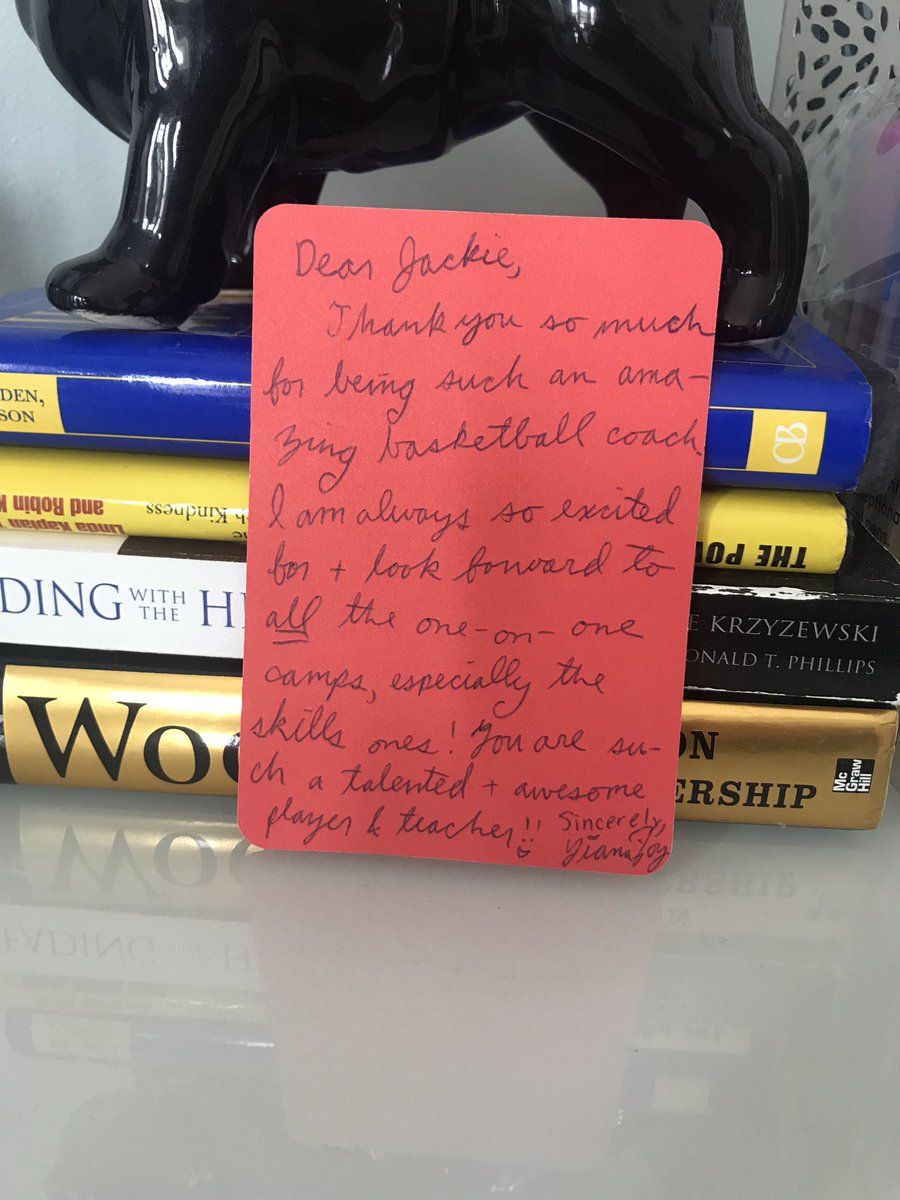 Dear Jackie,
Thank you so much
for being such an ama-
zing basketball coach.
I am always so excited
for + look forward to
all the one-on-one
camps, especially the
skills ones! You are su-
ch a talented + awesome
player & teacher!!
Sincerely,
DEN,
SON
CB
and Robin K
Linda Kaplan
h Kindness
THE POW
DING WITH THE H
E KRZYZEWSKI
ONALD T. PHILLIPS
Woo
ON
ERSHIP
Mc
Graw
Hill